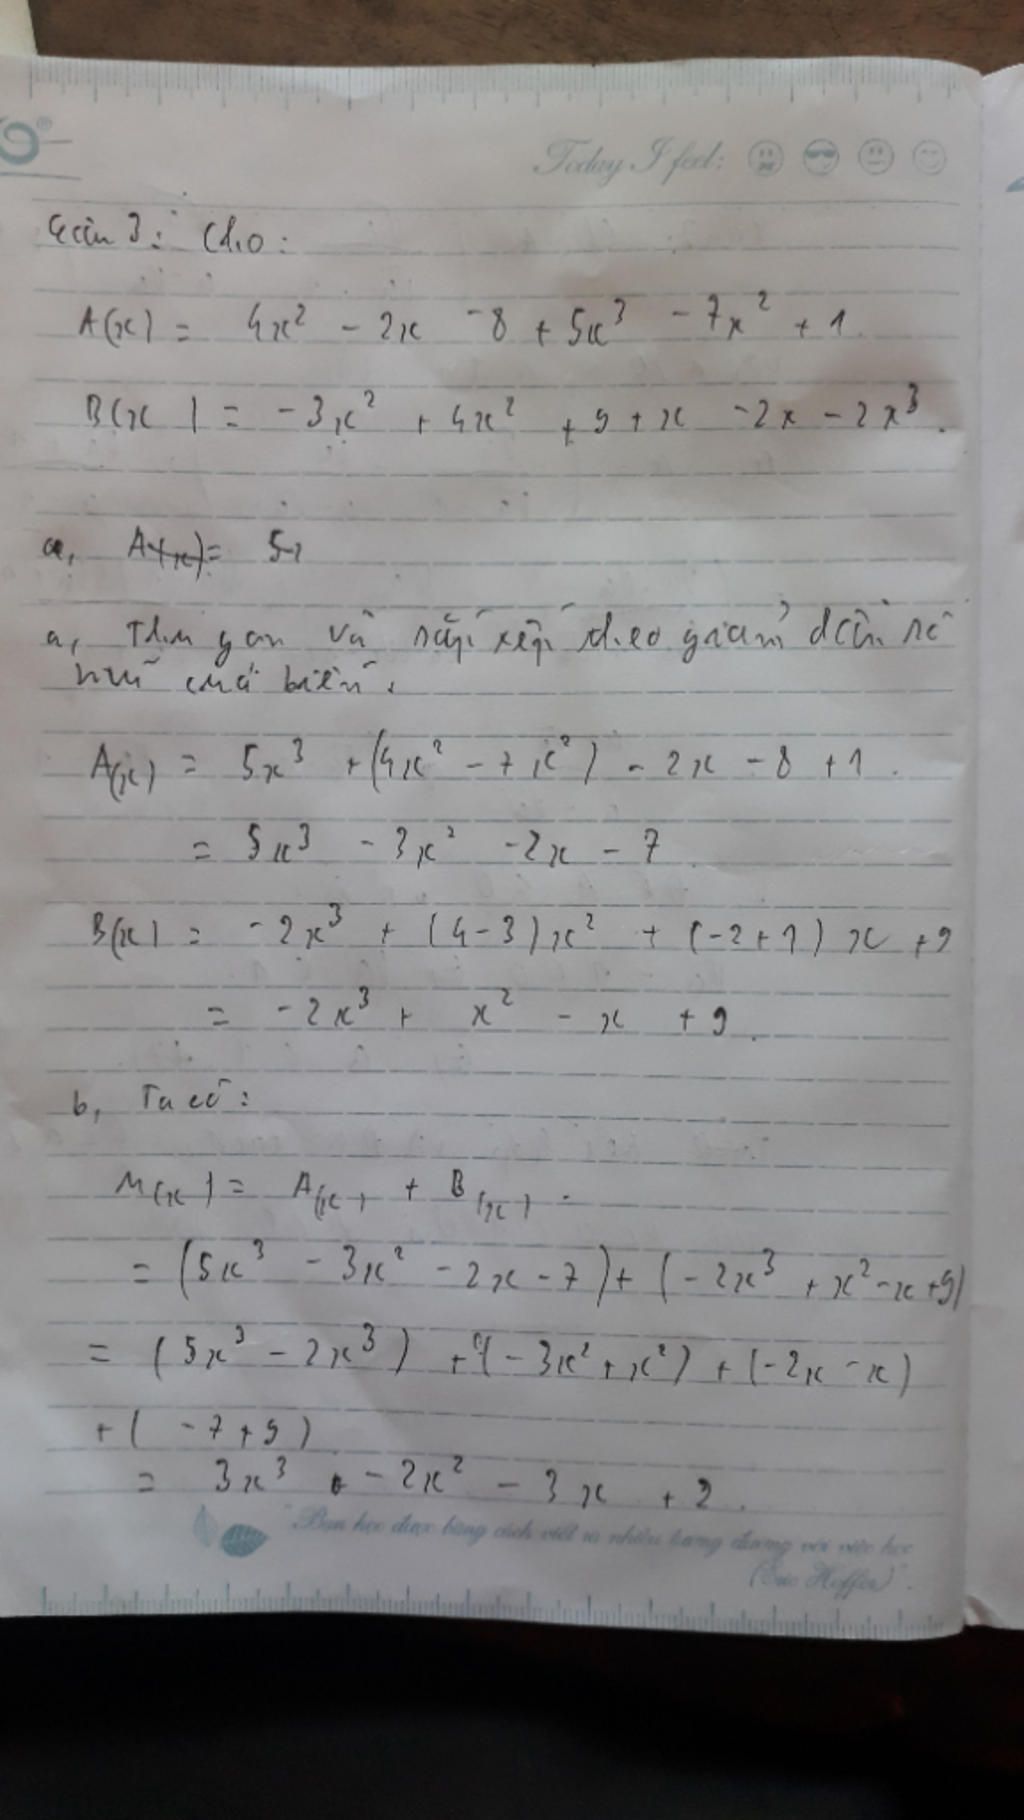 Today I feel:
Câu 3: Cho:
A(x) = 4x² - 2x - 8 + 5x³ - 7x² + 1.
B(x) = -3x² + 4x² + 9 + x - 2x - 2x³.
a, A(x) = 5
a, Thu gọn và sắp xếp theo giảm dần số
mũ của biến.
A(x) = 5x³ + (4x² - 7x²) - 2x - 8 + 1.
= 5x³ - 3x² - 2x - 7
B(x) = -2x³ + (4-3)x² + (-2+1)x + 9
= -2x³ + x² - x + 9.
b, Ta có:
M(x) = A(x) + B(x).
= (5x³ - 3x² - 2x - 7) + (-2x³ + x² - x + 9)
= (5x³ - 2x³) + (-3x² + x²) + (-2x - x)
+ (-7 + 9)
= 3x³ - 2x² - 3x + 2.
"Bạn học được bằng cách viết ra nhiều tương đương với việc học
(Eric Hoffer)".